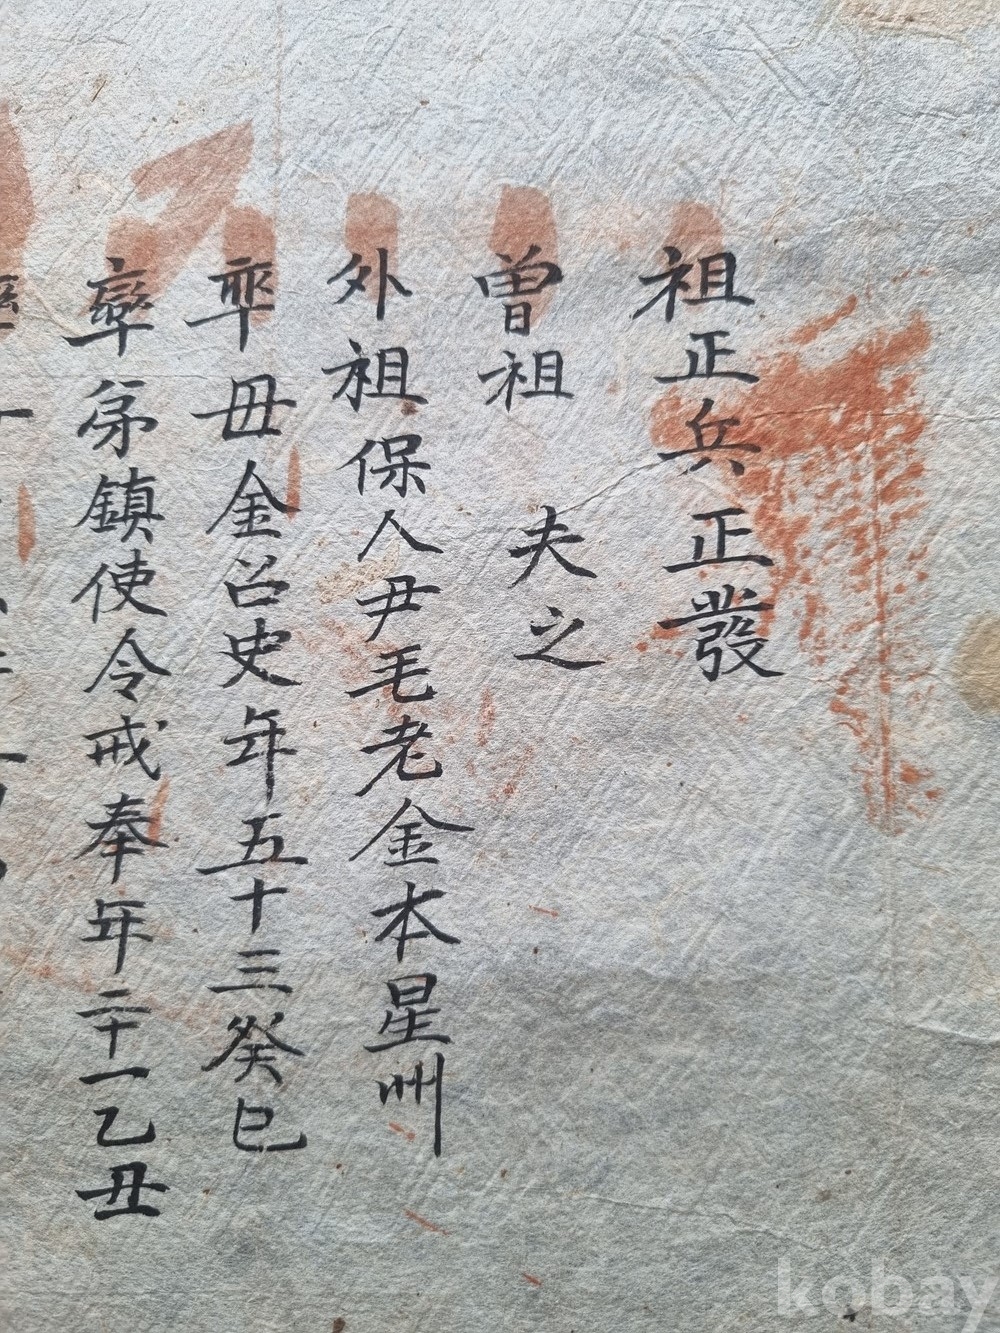 祖正兵正發
曾祖 夫之
外祖保人尹毛老金本星州
率母金召史年五十三癸巳
率弟鎮使令戒奉年二十一乙丑
kobay